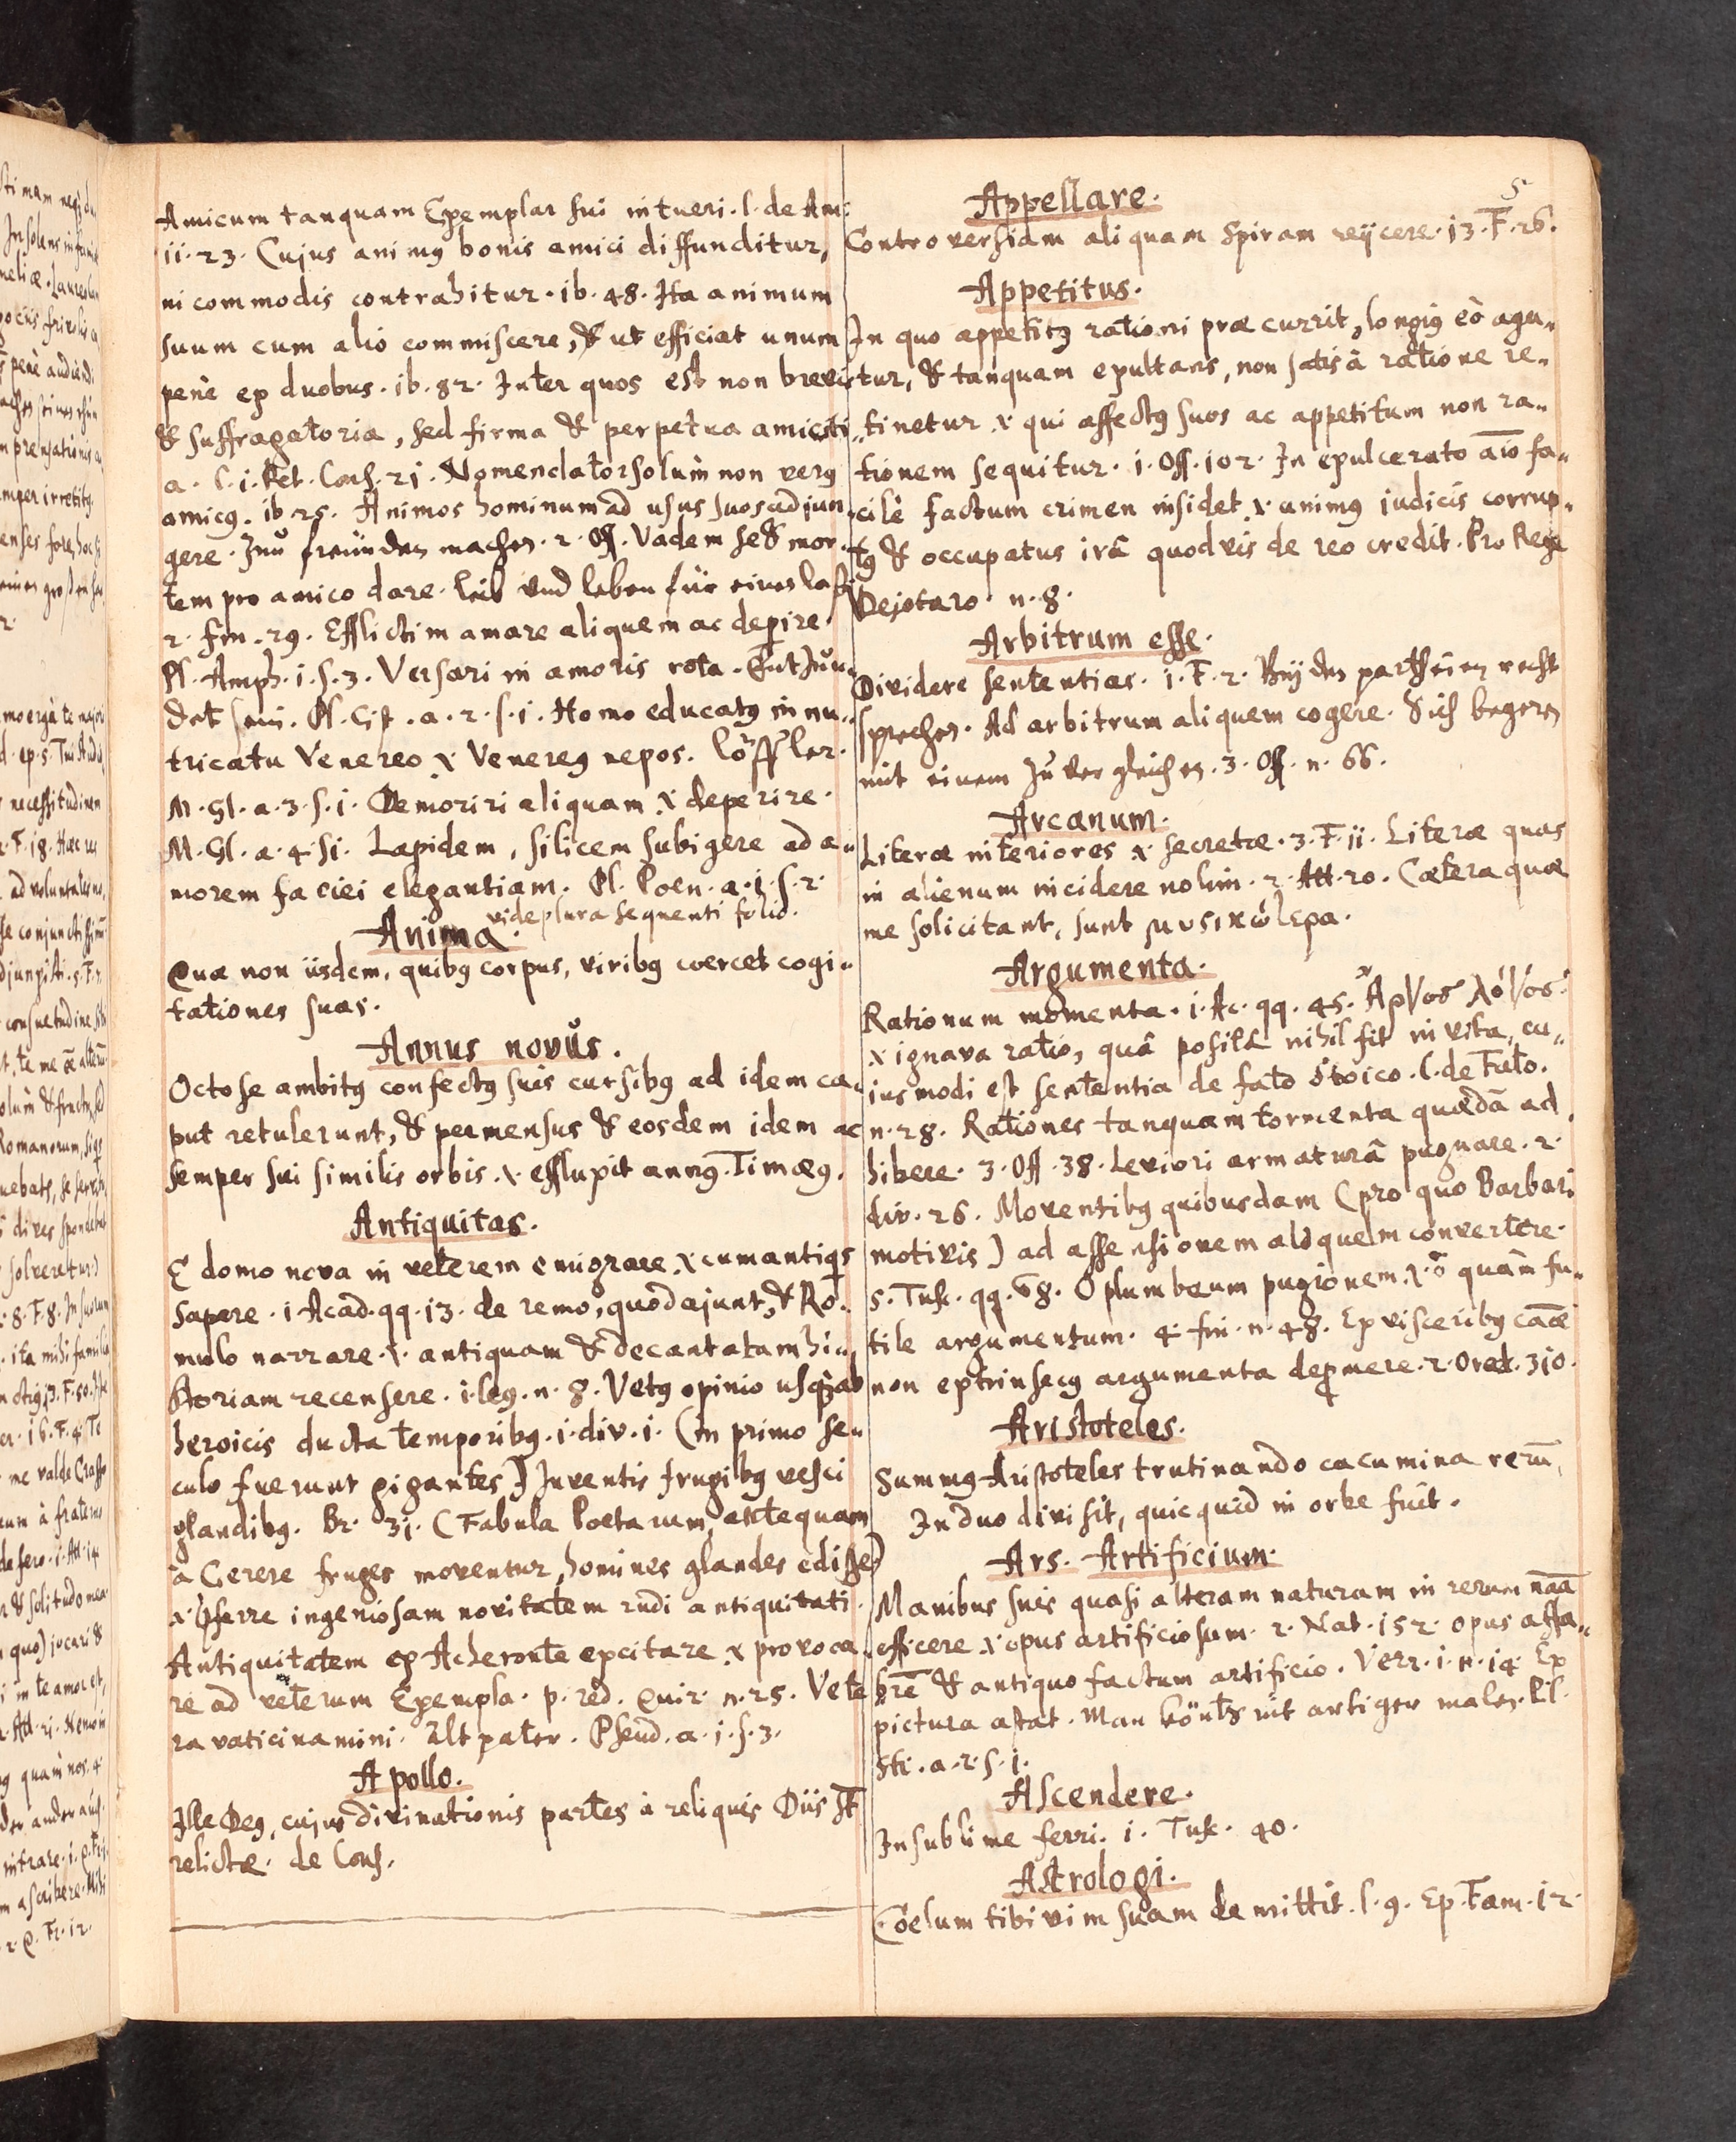 Amicum tanquam Exemplar sui intueri. l. de Am:
ii. 23. Cujus animꝰ bonis amici diffunditur,
incommodis contrahitur. ib. 48. Ita animum
suum cum alio commiscere, & ut efficiat unum
penè ex duobus. ib. 82. Inter quos est non brevis
& suffragatoria, sed firma & perpetua amiciti„
a. l. i. Pet. Cons. 21. Nomenclator solùm non verꝰ
amicꝰ. ib. 25. Animos hominum ad usus suos adjun„
gere. Zu freunden machen. 2. Off. Vadem se & mor„
tem pro amico dare. Leib und leben für einen laßen
2. fin. 29. Efflictim amare aliquem ac deperire.
Pl. Amph. i. s. 3. Versari in amoris rota. Entzün„
det sein. Pl. Cist. a. 2. s. i. Homo educatꝰ in nu„
tricatu Venereo x Venereꝰ nepos. löffler.
M. Gl. a. 3. s. i. Demoriri aliquam x deperire.
M. Gl. a. 4. s i. Lapidem, silicem subigere ad a„
morem faciei elegantiam. Pl. Poen. a. i. s. 2.
vide plura sequenti folio.
Anima.
Quæ non iisdem, quibꝰ corpus, viribꝰ coercet cogi„
tationes suas.
Annus novus.
Octo se ambitꝰ confectꝰ suis cursibꝰ ad idem ca„
put retulerunt, & permensus & eosdem idem ac
semper sui similis orbis. x. effluxit annꝰ. Timæꝰ.
Antiquitas.
E domo nova in veterem emigrare. x cum antiqs
sapere. i Acad. qq. 13. de remo, quod ajunt, & Ro„
mulo narrare. x. antiquam & decantatam hi„
storiam recensere. i. leg. n. 8. Vetꝰ opinio usqꝫ ab
heroicis ducta temporibꝰ. i. div. i. (in primo se„
culo fuerunt gigantes) Inventis frugibꝰ vesci
glandibꝰ. Br. 31. (Fabula Poetarum, antequam
à Cerere fruges moventur, homines glandes edisse)
x. p̱ferre ingeniosam novitatem rudi antiquitati.
Antiquitatem ex Acheronte excitare x provoca„
re ad veterum Exempla. p. red. Quir. n. 25. Vete
ra vaticinamini. Alt pater. Pseud. a. i. s. 3.
Apollo.
Ille Deꝰ, cujus divinationis partes à reliquis Diis st̄
relictæ. de Cons.
5
Appellare.
Controversiam aliquam Spiram reijcere. 13. F. 26.
Appetitus.
In quo appetitꝰ rationi præcurrit, longiꝰ eò agu„
tur, & tanquam exultans, non satis à ratione re„
tinetur x qui affectꝰ suos ac appetitum non ra„
tionem sequitur. i. Off. 102. In exulcerato aīo fa„
cilè factum crimen insidet. x animꝰ judicis corrup„
tꝰ & occupatus irâ quodvis de reo credit. Pro Rege
Dejotaro. n. 8.
Arbitrum esse.
Dividere sententias. i. F. 2. Beij den partheien recht
sprechen. Ad arbitrum aliquem cogere. Sich begeren
mit einem zu vergleichen. 3. Off. n. 66.
Arcanum.
Literæ interiores x secretæ. 3. F. ii. Literæ quas
in alienum incidere nolim. 2. Att. 20. Cætera quæ
me solicitant, sunt μυσικώlεραι.
Argumenta.
Rationum momenta. i. Ac. qq. 45. Ἀργος λόγος.
x ignava ratio, quâ positâ nihil fit in vita, cu„
iusmodi est sententia de fato stoico. l. de Fato.
n. 28. Rationes tanquam tormenta quædā ad
hibere. 3. Off. 38. Leviori armaturâ pugnare. 2.
div. 26. Moventibꝰ quibusdam (pro quo Barbari
motivis) ad assensionem aliquem convertere.
5. Tusc. qq. 68. O plumbeum pugionem. x. ō quàm fu„
tile argumentum. 4. fin. n. 48. Ex visceribꝰ cāæ
non extrinsecꝰ argumenta dep̱mere. 2. Orat. 310.
Aristoteles.
Summꝰ Aristoteles trutinando cacumina rerū,
In duo divisit, quicquid in orbe fuit.
Ars. Artificium.
Manibus suis quasi alteram naturam in rerum nāā
efficere x opus artificiosum. 2. Nat. 152. opus affa„
brē & antiquo factum artificio. Verr. i. n. 14. Ex
pictura astat. Man könts nit artiger malen. Pl.
Sti. a. 2. s. i.
Ascendere.
In sublime ferri. i. Tusc. 40.
Astrologi.
Coelum tibi vim suam demittit. l. 9. Ep. Fam. 12.